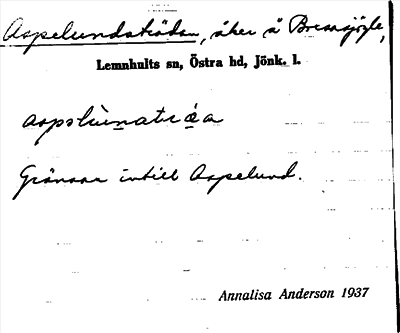 Aspelundsträdan, åker å Bressajöyle,
Lemnhults sn, Östra hd, Jönk. l.
aspslùnatrǽa
Gränsar intill Aspelund.
Annalisa Anderson 1937